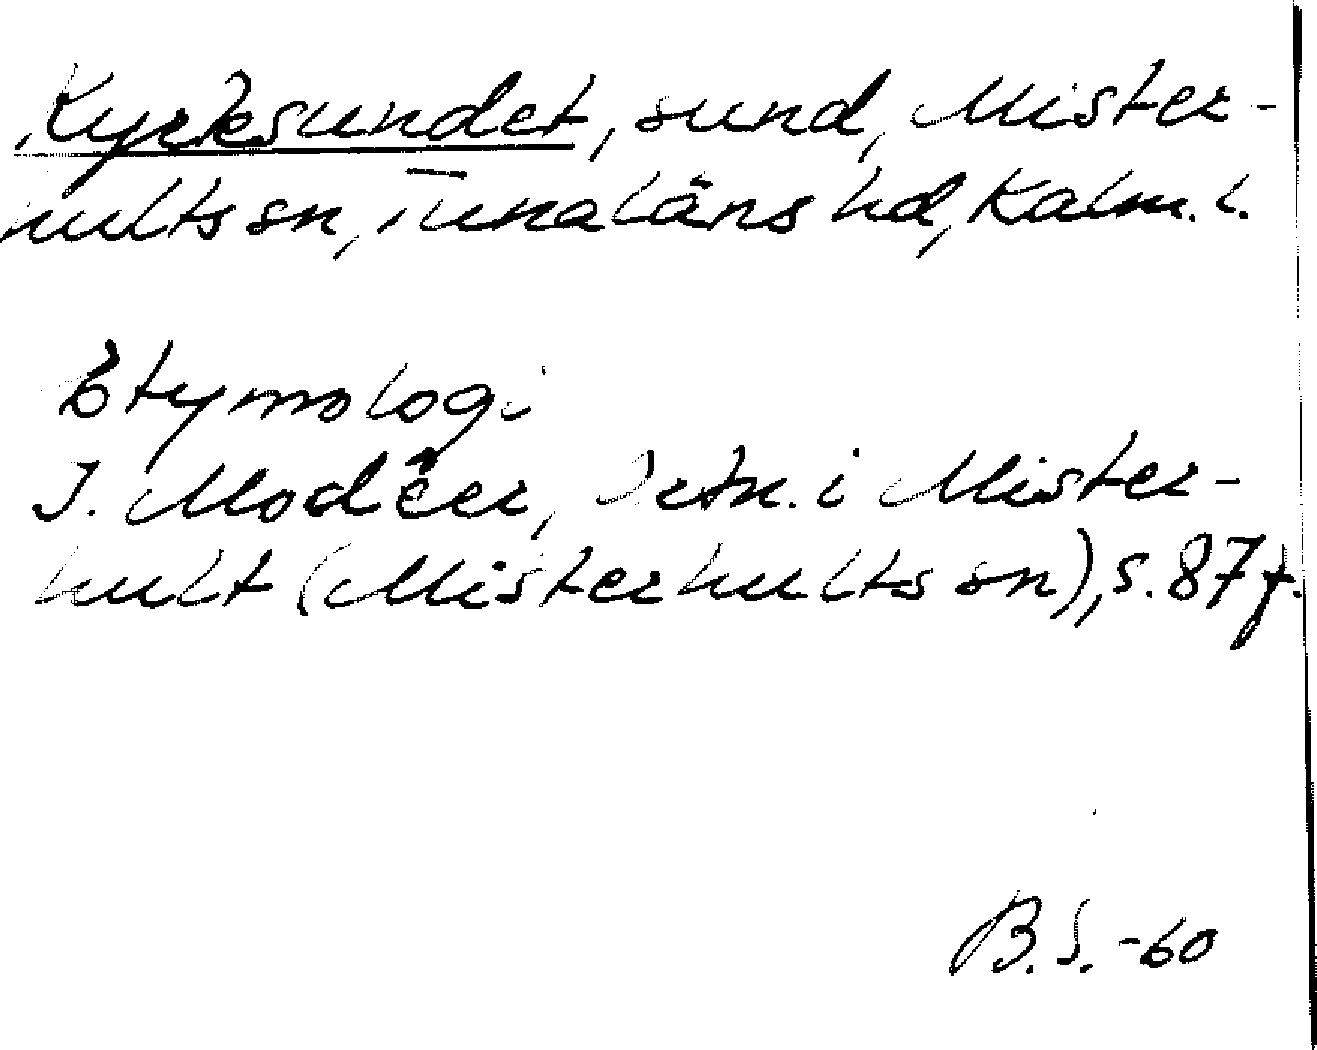 Kyrksundet, sund, Mister-
hults sn, Tunaläns hd, Kalm. l.
Etymologi
I. Modéer, Ortn. i Mister-
hult (Misterhults sn), s. 87 f.
B.S. -60